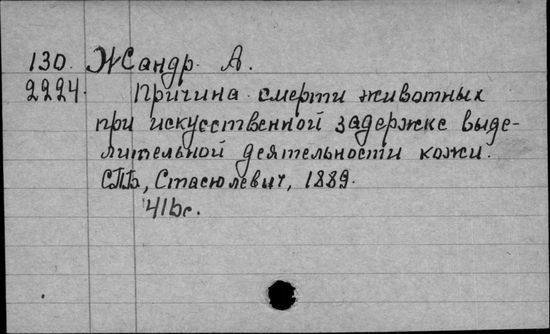 130. Жандр А.
2224. Причина смерти животных
при искусственной задержке выде-
лительной деятельности кожи.
СПБ, Стасюлевич, 1889.
41Бс.